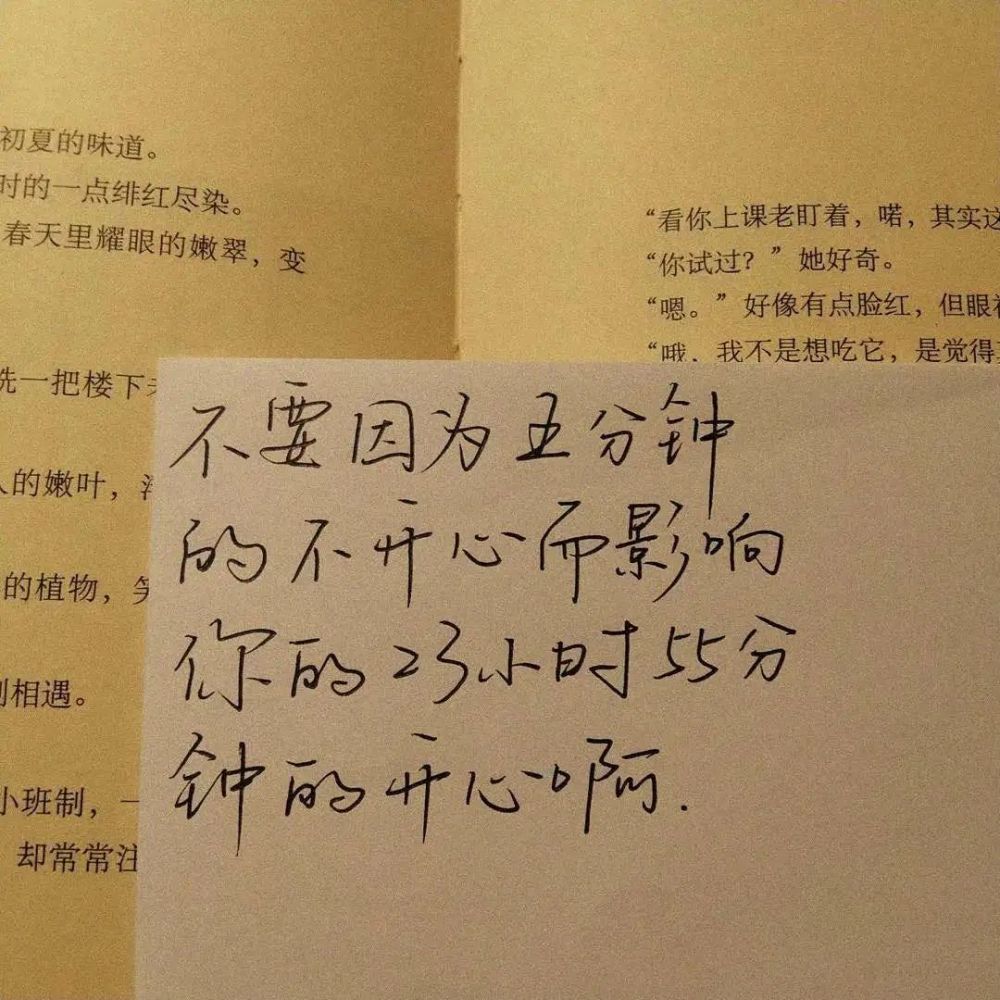 初夏的味道。
时的一点绯红尽染。
春天里耀眼的嫩翠，变
洗一把楼下
人的嫩叶，
的植物，笑
到相遇。
小班制，一
却常常注
“看你上课老盯着，喏，其实这
“你试过？”她好奇。
“嗯。”好像有点脸红，但眼
“哦，我不是想吃它，是觉得
不要因为五分钟
的不开心而影响
你的23小时55分
钟的开心啊.